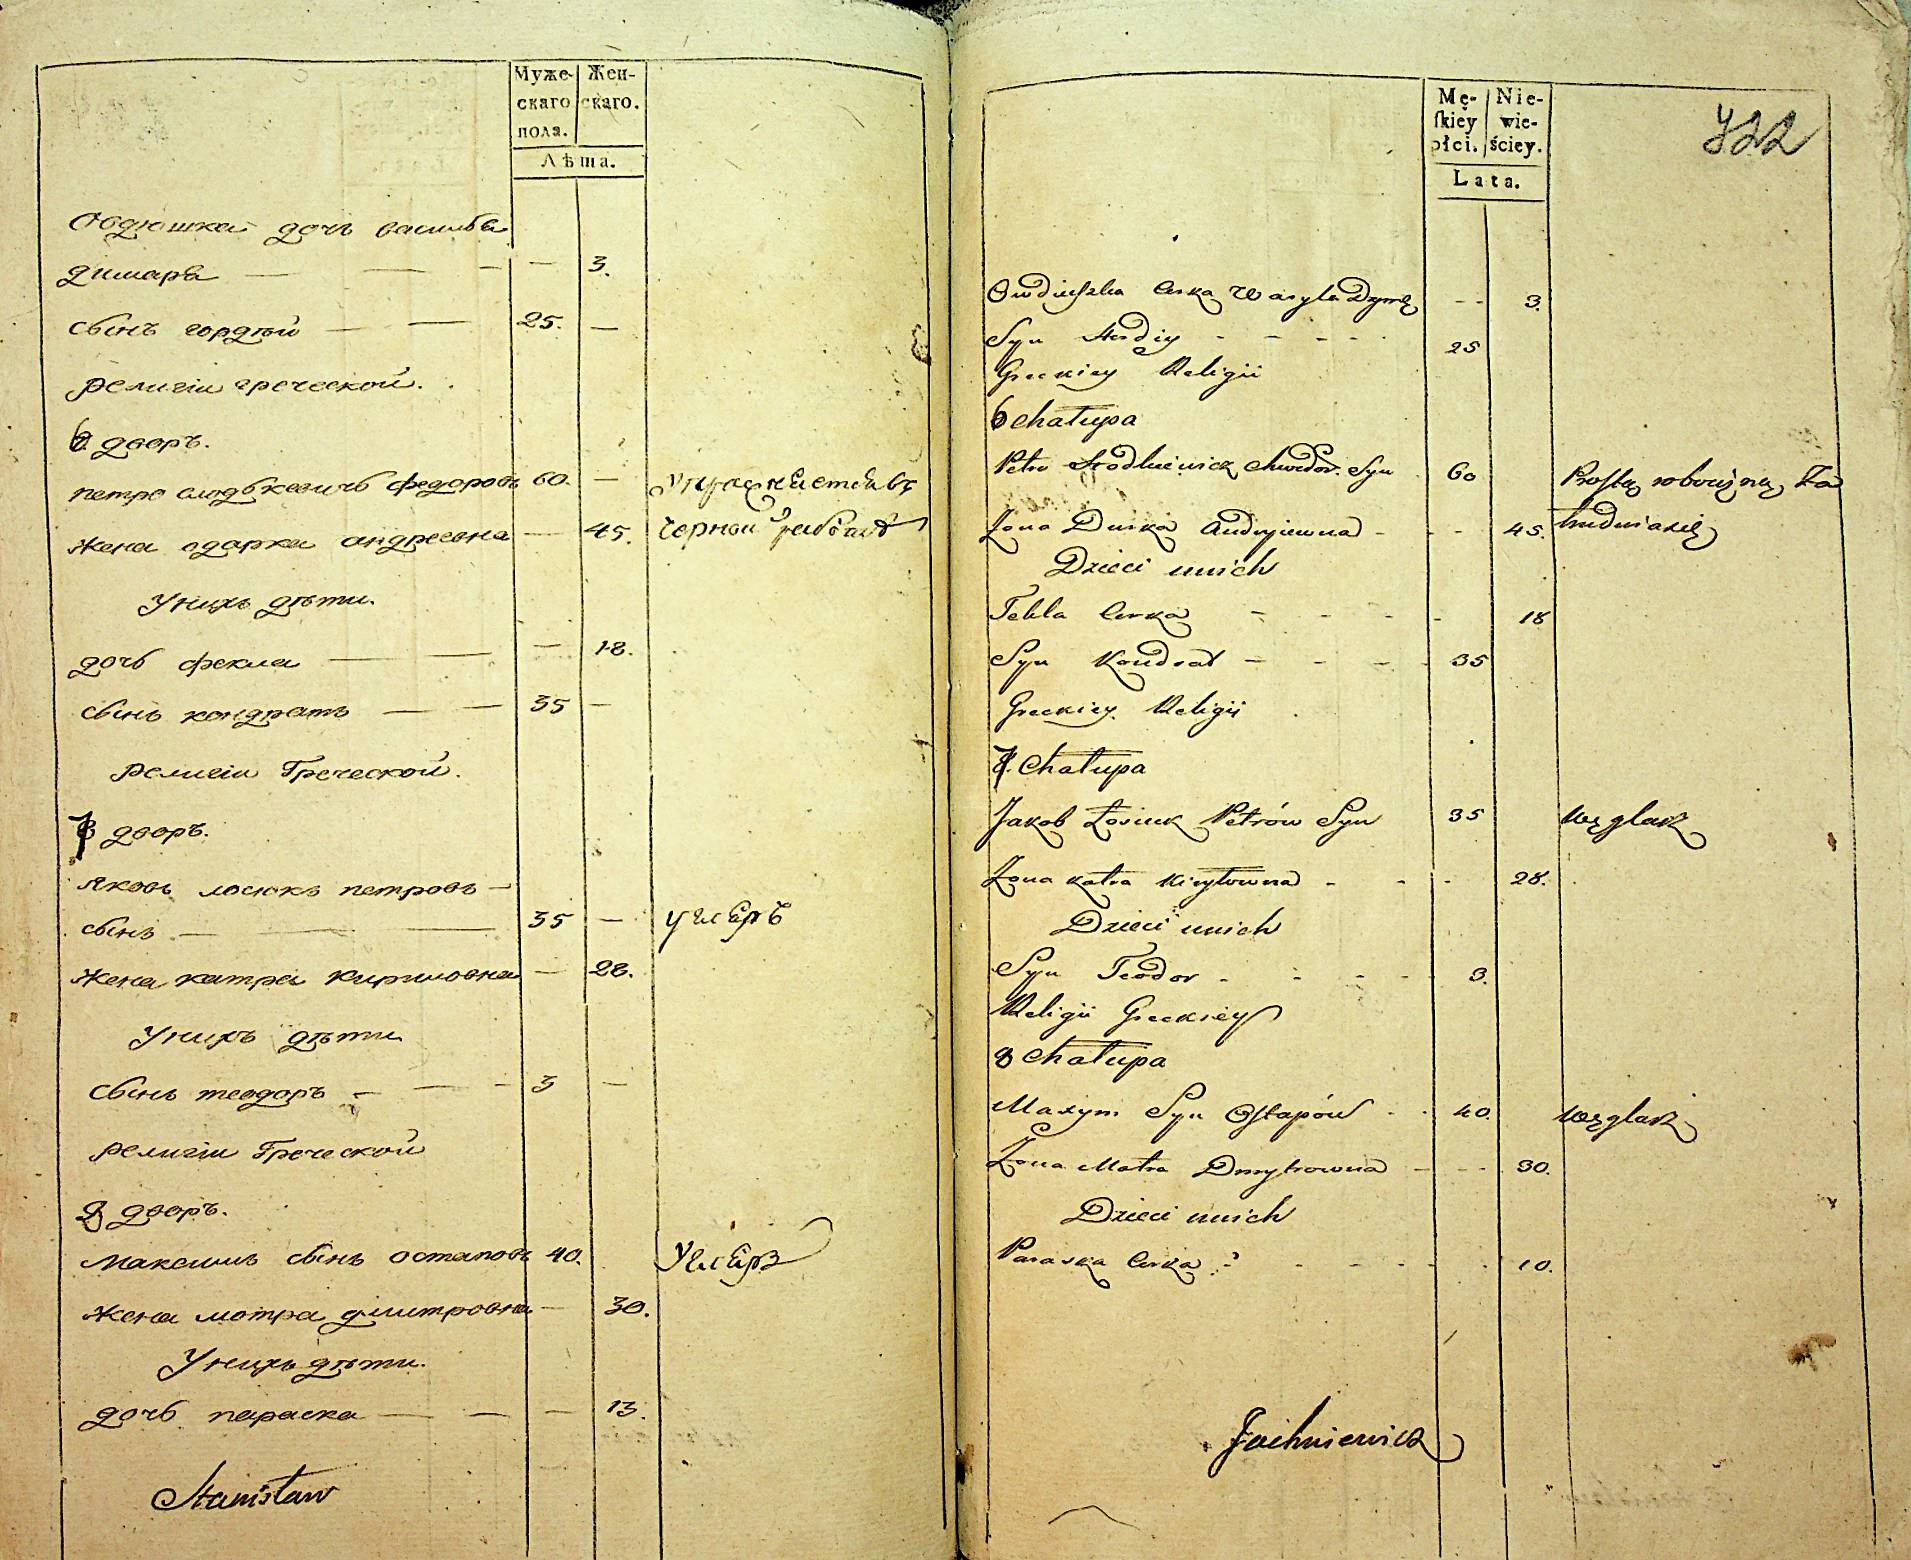 Муже- Жен-
скаго скаго.
пола.
Лѣта.
Овдюшка дочь василья
димара — — — — 3.
сынъ гордѣй — — 25. —
религіи греческой.
6 дворъ.
петро слодкевичъ федоровъ 60. —
жена одарка андреевна — 45. Черной работ
У нихъ дѣти.
дочь фекла — — — 18.
сынъ кондратъ — — 35 —
религіи Греческой.
7 дворъ.
яковъ лосюкъ петровъ —
сынъ — — — 35 —
жена катра кириловна — 28.
У нихъ дѣти
сынъ теодоръ — — - 3 —
религіи Греческой
8 дворъ.
Максимъ сынъ остаповъ 40.
жена мотра дмитровна — 30.
У нихъ дѣти.
дочь параска — — — 13.
Stanisław
Mę- Nie-
ſkiey wie-
płci. ściey.
Lata.
722
Owdiuszka Curka Wasyla Dymę - - 3.
Syn Hordiy - - - - 25
Greckiey Religii
6 Chałupa
Petro Słodkiewicz Chwedor. Syn 60 Prostą robocizną Za
Żona Darka Andryiewna - - - 45. trudnia się
Dzieci unich
Tekla Curka - - - - 18
Syn Kondrat - - - - 35
Greckiey Religii
7. Chałupa
Jakob Łosiuk Petrów Syn 35 Węglarz
Żona Katra Kiryłowna - - - 28.
Dzieci unich
Syn Teodor - - - - 3.
Religii Greckiey
8 Chałupa
Maxym Syn Ostapów - - 40. Węglarz
Żona Motra Dmytrowna - - - 30.
Dzieci unich
Paraska Curka - - - - - 10.
Jachniewicz